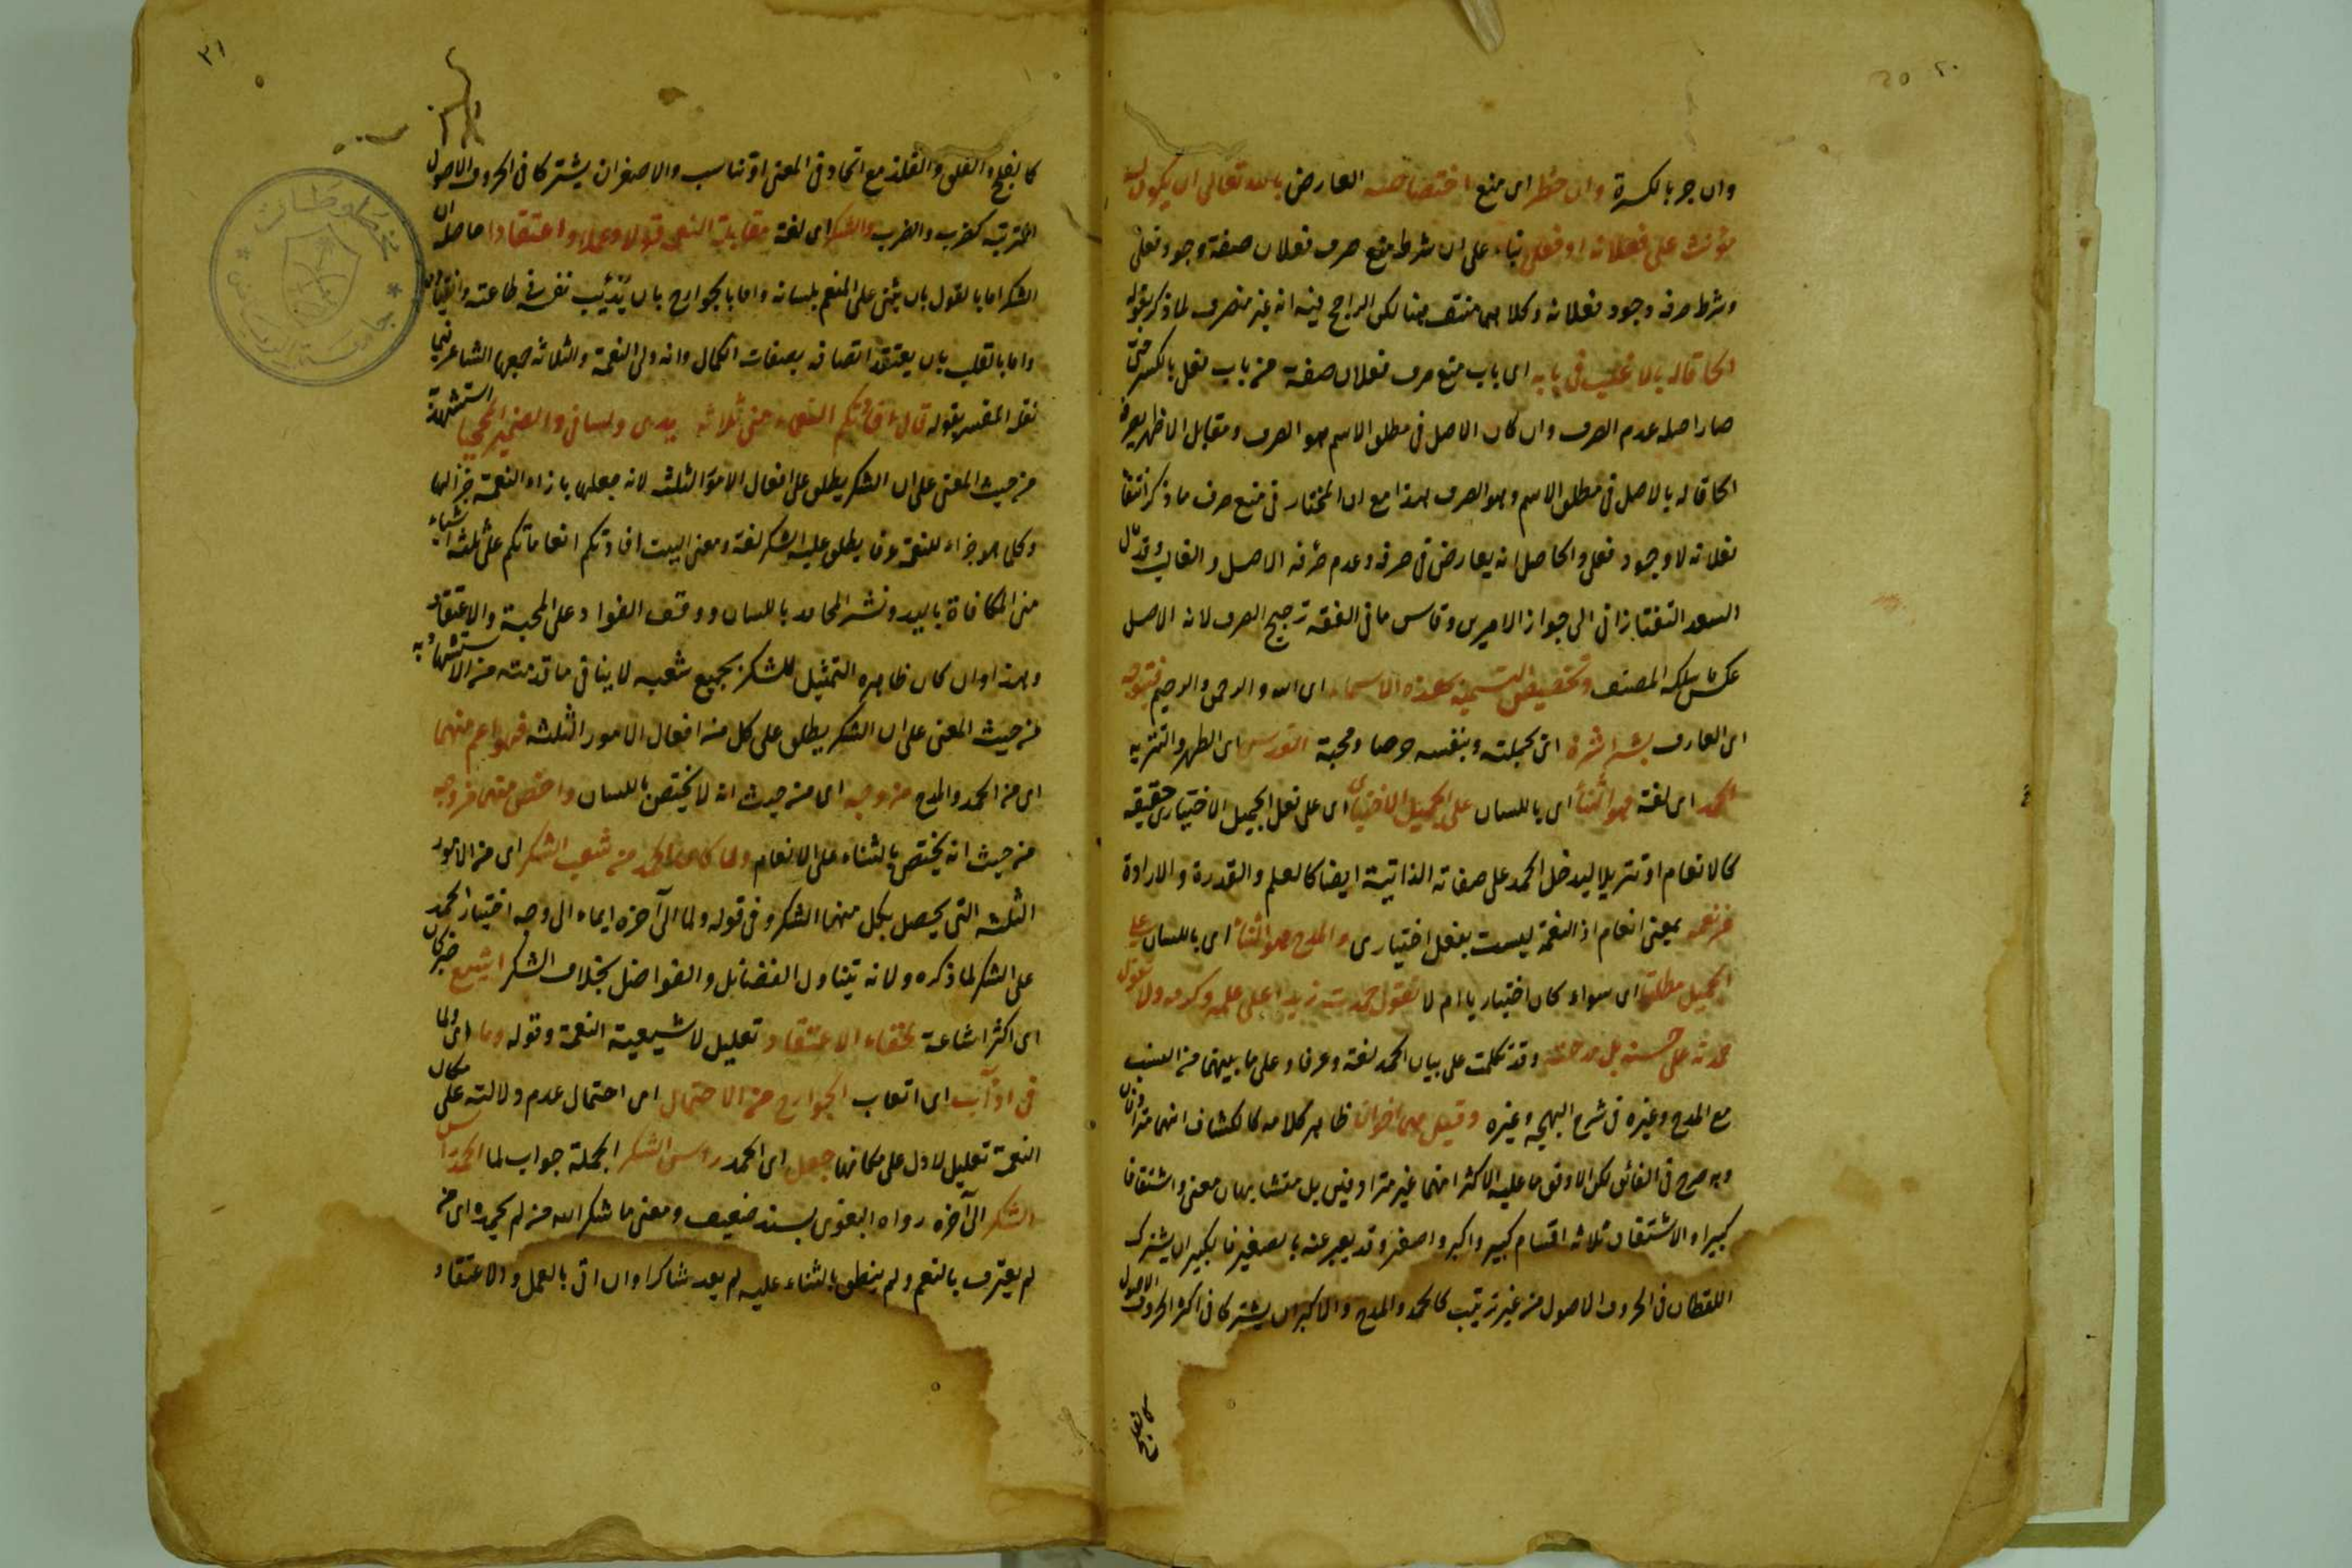 ٢٠
وان جر بالكسرة وان حظر اى منع اختصاصه العارض بالله تعالى ان يكون له
مؤنث على فعلانه او فعلى بناء على ان شرط منع صرف فعلان صفة وجود فعلى
وشرط صرفه وجود فعلانه وكلاهما منتف هنا لكن الراجح فيه انه غير منصرف لما ذكر بقوله
الحاقا له بالاغلب فى بابه اى باب منع صرف فعلان صفة من باب فعل بالكسر حتى
صار اصله عدم الصرف وان كان الاصل فى مطلق الاسم هو الصرف ومقابل الاظهر يصرفه
الحاقا له بالاصل فى مطلق الاسم وهو الصرف هذا مع ان المختار فى منع صرف ما ذكر انتفا
فعلانه لا وجود فعلى والحاصل انه يعارض فى صرفه وعدم صرفه الاصل والغالب وقد مال
السعد التفتازانى الى جواز الامرين وقاس ما فى الفقه ترجيح الصرف لانه الاصل
عكس ما سلكه المصنف وتخصيص التسمية بهذه الاسماء اى الله والرحمن والرحيم فيتوجه
اى العارف بشراشره اى بجملته وبنفسه حرصا ومحبة القدس اى الطهر والتنزيه
الحمد اى لغة هو الثناء اى باللسان على الجميل الاختيارى اى على فعل الجميل الاختيارى حقيقة
كالانعام او تنزيلا ليدخل الحمد على صفاته الذاتية ايضا كالعلم والقدرة والارادة
من نعمة بمعنى انعام اذ النعمة ليست بفعل اختيارى والمدح هو الثناء اى باللسان على
الجميل مطلقا اى سواء كان اختياريا ام لا تقول حمدت زيدا على علمه وكرمه ولا تقول
حمدته على حسنه بل مدحته وقد تكلمت على بيان الحمد لغة وعرفا وعلى ما بينهما من النسب
مع المدح وغيره فى شرح البهجة وغيره وقيل هما اخوان ظاهر كلامه كالكشاف انهما مترادفان
وبه صرح فى الفائق لكن الاوفق ما عليه الاكثر انهما غير مترادفين بل متشابهان معنى واشتقاقا
كبيرا والاشتقاق ثلاثة اقسام كبير واكبر واصغر وقد يعبر عنه بالصغير فالكبير ان يشترك
اللفظان فى الحروف الاصول من غير ترتيب كالحمد والمدح والاكبر ان يشتركا فى اكثر الحروف الاصول
كالفلج
٢١
كالفلج والفلق والفلذ مع اتحاد فى المعنى او تناسب والاصغر ان يشتركا فى الحروف الاصول
المرتبة كضرب والضرب والشكر اى لغة مقابلة النعمة قولا وعملا واعتقادا حاصله ان
الشكر اما بالقول بان يثنى على المنعم بلسانه واما بالجوارح بان يدئب نفسه فى طاعته وانقياده
واما بالقلب بان يعتقد اتصافه بصفات الكمال وانه ولى النعمة والثلاثة جمعها الشاعر فيما
نقله المفسر بقوله قال افادتكم النعماء منى ثلاثة يدى ولسانى والضمير المحجبا استشهد به
من حيث المعنى على ان الشكر يطلق على افعال الامور الثلثة لانه جعلها بازاء النعمة جزاء لها
وكل ما هو جزاء للنعمة عرفا يطلق عليه الشكر لغة ومعنى البيت افادتكم انعاماتكم على ثلثة اشياء
منى المكافاة باليد ونشر المحامد باللسان ووقف الفؤاد على المحبة والاعتقاد
وهذا وان كان ظاهره التمثيل للشكر بجميع شعبه لا ينافى ما قدمته من الاستشهاد به
من حيث المعنى على ان الشكر يطلق على كل من افعال الامور الثلثة فهو اعم منهما
اى من الحمد والمدح من وجه اى من حيث انه لا يختص باللسان واخص منهما من وجه
من حيث انه يختص بالثناء على الانعام ولما كان الحمد من شعب الشكر اى من الامور
الثلثة التى يحصل بكل منها الشكر وفى قوله ولما الى آخره ايماء الى وجه اختيار الحمد
على الشكر لما ذكره ولانه يتناول الفضائل والفواضل بخلاف الشكر اشيع خبر كان
اى اكثر اشاعة لخفاء الاعتقاد تعليل لاشيعية النعمة وقوله وما اى ولما
فى ادآب اى اتعاب الجوارح من الاحتمال اى احتمال عدم دلالته على مكان
النعمة تعليل لادل على مكانها جعل اى الحمد رأس الشكر الجملة جواب لما الحمد رأس
الشكر الى آخره رواه البغوى بسند ضعيف ومعنى ما شكر الله من لم يحمده اى من
لم يعترف بالنعم ولم ينطق بالثناء عليه لم يعد شاكرا وان اتى بالعمل والاعتقاد